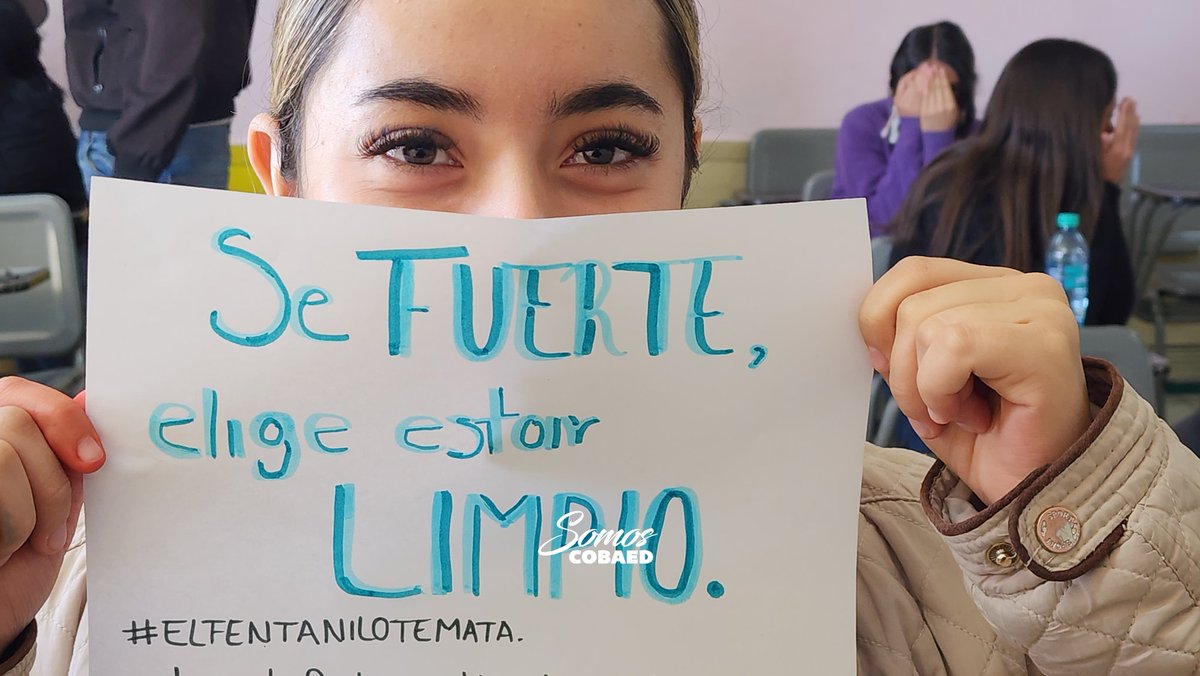 Se FUERTE,
elige estar
LIMPIO.
Somos
COBAED
#ELFENTANILOTEMATA.